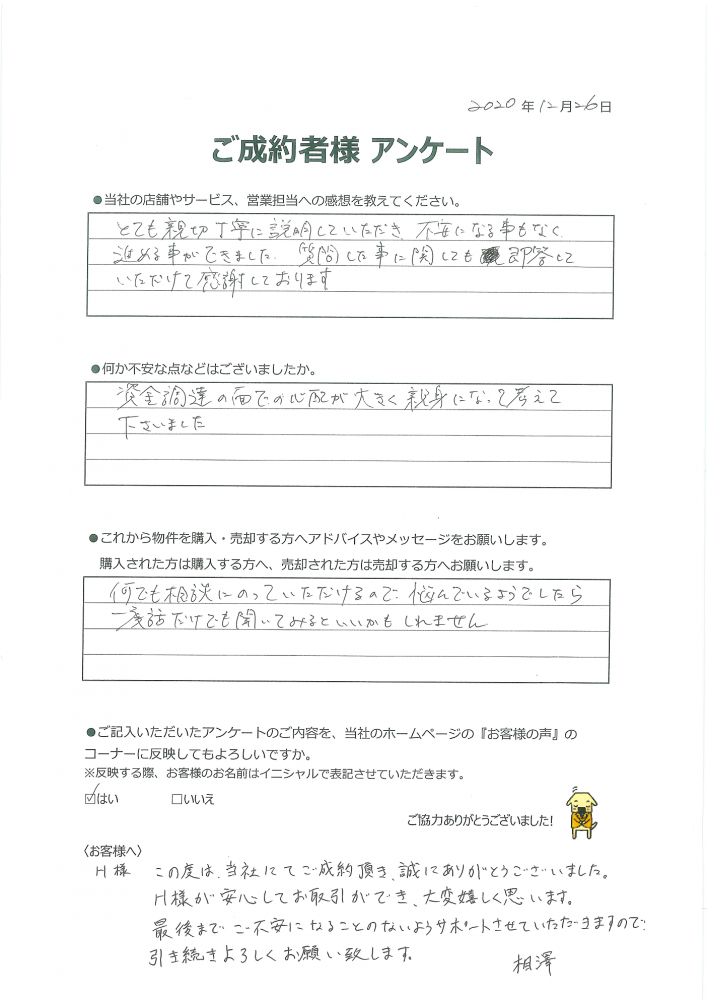 2020年12月26日
ご成約者様 アンケート
●当社の店舗やサービス、営業担当への感想を教えてください。
とても親切丁寧に説明していただき、不安になる事もなく、
進める事ができました。質問した事に関しても即答して
いただけて感謝しております
●何か不安な点などはございましたか。
資金調達の面での心配が大きく親身になって考えて
下さいました
●これから物件を購入・売却する方へアドバイスやメッセージをお願いします。
購入された方は購入する方へ、売却された方は売却する方へお願いします。
何でも相談にのっていただけるので、悩んでいるようでしたら
一度話だけでも聞いてみるといいかもしれません
●ご記入いただいたアンケートのご内容を、当社のホームページの『お客様の声』の
コーナーに反映してもよろしいですか。
※反映する際、お客様のお名前はイニシャルで表記させていただきます。
☑はい □いいえ
ご協力ありがとうございました!
〈お客様へ〉
H様 この度は、当社にてご成約頂き、誠にありがとうございました。
H様が安心してお取引ができ、大変嬉しく思います。
最後までご不安になることのないようサポートさせていただきますので
引き続きよろしくお願い致します。
相澤